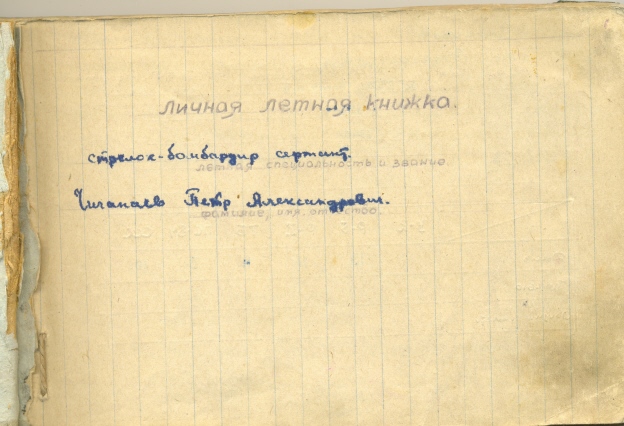 Личная летная книжка.
стрелок-бомбардир сержант.
летная специальность и звание.
Чичанаев Петр Александрович.
фамилие, имя, отчество.